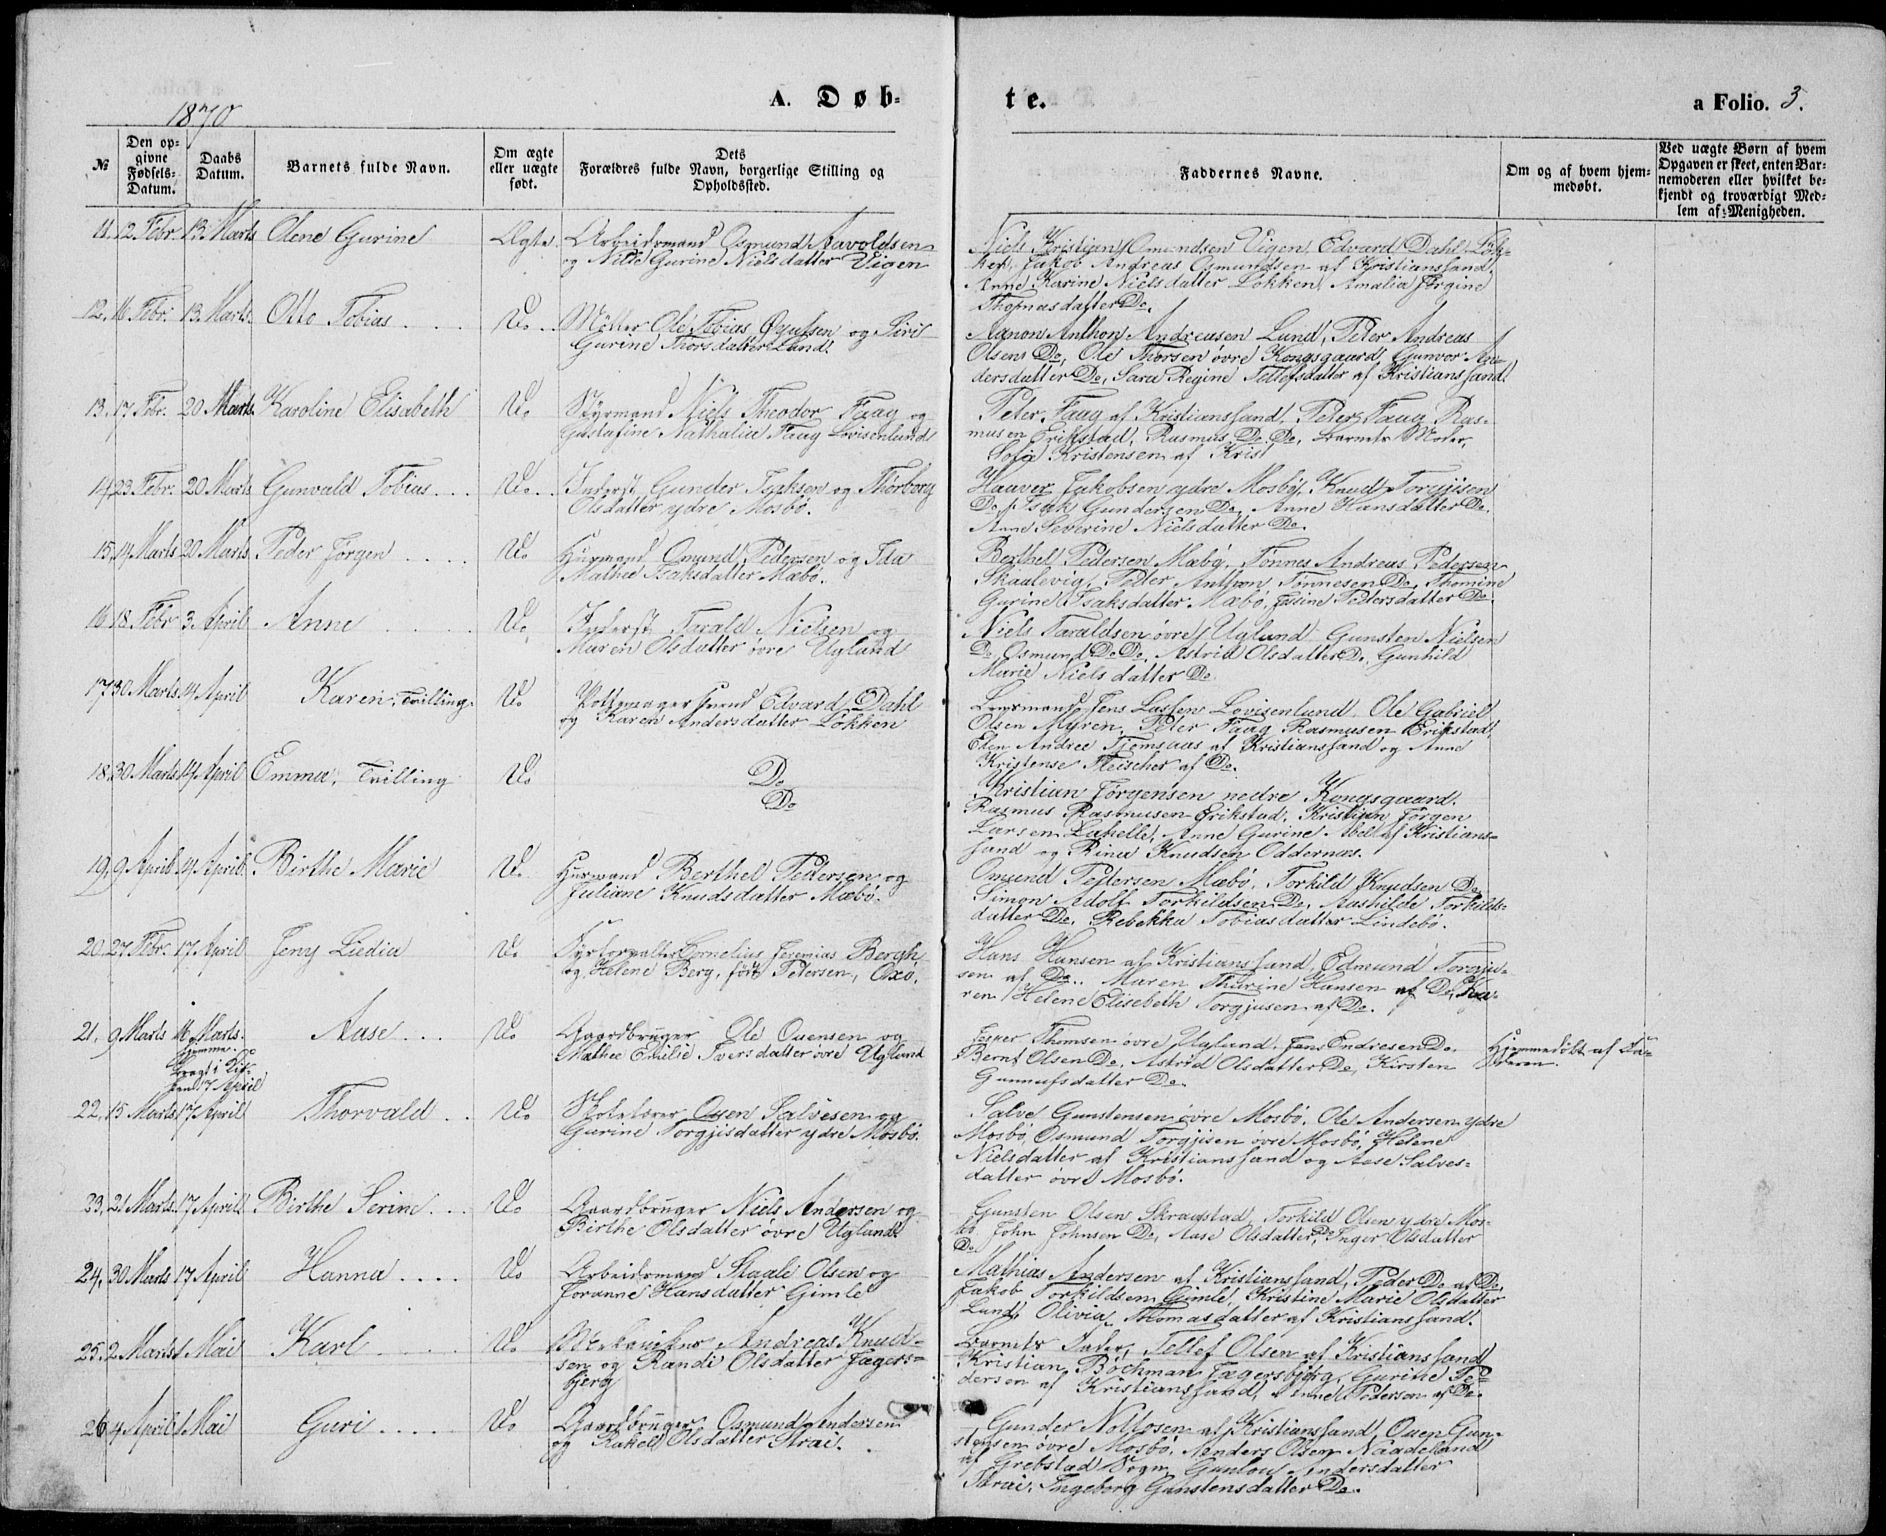 1870
A. Døb-
te.
a Folio. 3.
№
Den op-
givne
Fødsels-
Datum.
Daabs
Datum.
Barnets fulde Navn.
Om ægte
eller uægte
født.
Dets
Forældres fulde Navn, borgerlige Stilling og
Opholdssted.
Faddernes Navne.
Om og af hvem hjem-
medøbt.
Ved uægte Børn af hvem
Opgaven er skeet, enten Bar-
nemoderen eller hvilket be-
kjendt og troværdigt Med-
lem af Menigheden.
11. 12 Febr. 13 Marts Olene Gurine Ægte Arbeidsmand Osmund Aavoldsen
og Nilde Gurine Nielsdatter Vigen
Niels Kristian Omundsen Vigen, Edvard Dahl Løk-
ken, Jakob Andreas Osmundsen af Kristianssand,
Anne Karine Nielsdatter Løkken, Amalia Jørgine
Thomasdatter Do.
12. 16 Febr. 13 Marts Otto Tobias Do Møller Ole Tobias and Siril
Gurine Thorsdatter Lund.
Aanon Anthon Andreasen Lund, Peter Andreas
Olsen Do, Ole Thorsen øvre Kongsgaard, Gunvor An-
dersdatter Do, Sara Regine Tellefsdatter af Kristianssand.
13. 17 Febr. 20 Marts Karoline Elisabeth Do Styrmand Niels Theodor Faag og
Gustafine Nathalia Faag Lovisenlund
Peter Faag af Kristianssand, Peter Faag Ras-
musen Erikstad, Rasmus Do Do, Barnets Moder,
Sofie Kristensen af Krist
14. 23 Febr. 20 Marts Gunvald Tobias Do Inderst Gunder Isaksen og Thorborg
Olsdatter ydre Mosbø.
Haaver Jakobsen ydre Mosby, Knud Torgjisen
Do, Isak Gundersen Do, Anne Hansdatter Do.
Anne Severine Nielsdatter Do.
15. 14 Marts 20 Marts Peder Jørgen Do Huusmand Omund Pedersen og Ida
Mathea Isaksdatter Mæbø.
Berthel Pedersen Mæbø, Tønnes Andreas Pedersen
Skaalevig, Peter Anthon Tønnesen Do, Thomine
Gurine Isaksdatter Mæbø, Josine Pedersdatter Do.
16 18 Febr 3 April Anne Do Inderst Tarald Nielsen og
Maren Olsdatter øvre Ugland
Niels Taraldsen øvre Ugland Gunsten Nielsen
Do, Osmund Do Do, Astrid Olsdatter Do, Gunhild
Marie Nielsdatter Do
17 30 Marts 14 April Karen, Tvilling. Do Pottemagersvend Edvard Dahl
og Karen Andersdatter Løkken
Lensmand Jens Lassen Lovisenlund. Ole Gabriel
Olsen Myren, Peter Faag Rasmusen Erikstad,
Ellen Andrea Tjomsaas af Kristianssand og Anne
Kristense Fleischer af Do.
18. 30 Marts 14 April Emma, Tvilling Do Do
Do
Kristian Jørgensen nedre Kongsgaard.
Rasmus Rasmusen Erikstad, Kristian Jørgen
Larsen Lahelle, Anne Gurine Abel af Kristians-
sand og Rina Knudsen Oddernæs.
19. 9 April 14 April Birthe Marie Do Huusmand Berthel Pedersen og
Juliane Knudsdatter Mæbø.
Omund Pedersen Mæbø. Torkild Knudsen Do
Simon Adolf Torkildsen Do, Aashilde Torkilds-
datter Do, Rebekka Tobiasdatter Lindebø.
20. 27 Febr. 17 April Jeny Liedia Do Fyrforvalter Cornelius Jeremias Bergh
og Helene Berg, født Petersen, Oxø.
Hans Hansen af Kristianssand, Edmund Torgju-
sen af Do. Maren Thurine Hansen af Do, Ka-
ren Helene Elisebeth Torgjusen af Do.
21. 9 Marts 16 Marts.
hjemme.
bragt i Kir-
ken 17 April
Aase Do Gaardbruger Ole Ouensen og
Mathea Emilie Iversdatter øvre Ugland
Jesper Thomsen øvre Ugland. Jens Endresen Do.
Bernt Olsen Do, Astrid Olsdatter Do, Kirsten
Gunnufsdatter Do.
Hjemmedøbt af Fa-
deren.
22. 15 Marts 17 April Thorvald Do Ouen Salvesen og
Gurine Torgjisdatter ydre Mosbø.
Salve Gunstensen øvre Mosbø, Ole Andersen ydre
Mosbø, Osmund Torgjisen øvre Mosbø, Helene
Nielsdatter af Kristianssand og Aase Salves-
datter øvre Mosbø.
23. 21 Marts. 17 April Birthe Serine Do Gaardbruger Niels Andersen og
Birthe Olsdatter øvre Ugland
Gunsten Olsen Skragstad, Torkild Olsen ydre Mos-
bø John Johnsen Do, Aase Olsdatter Do, Inger Olsdatter
Do
24. 30 Marts 17 April Hanna Do Arbeidsmand Staale Olsen og
Joranne Hansdatter Gimle
Mathias Andersen af Kristianssand, Peder Do af Do,
Jakob Torkildsen Gimle, Kristine Marie Olsdatter
Lund, Olivia Thomasdatter af Kristianssand.
25. 2 Marts 1 Mai Karl Do Andreas Knud-
sen og Randi Olsdatter Jægers-
bjerg
Barnets Fader, Tellef Olsen af Kristianssand
Kristian Bøckman Jægersbjerg, Gurine Pe-
dersen af Kristianssand, Anne Pedersen af Do.
26 4 April 1 Mai Guri Do Gaardbruger Osmund Andersen
og Rakel Olsdatter Strai.
Gunder Nottosen af Kristianssand, Ouen Gun-
stensen øvre Mosbø. Anders Olsen Naadeland
af Grebstad Sogn, Gunlou Andersdatter
Strai, Ingeborg Gunstensdatter Do.